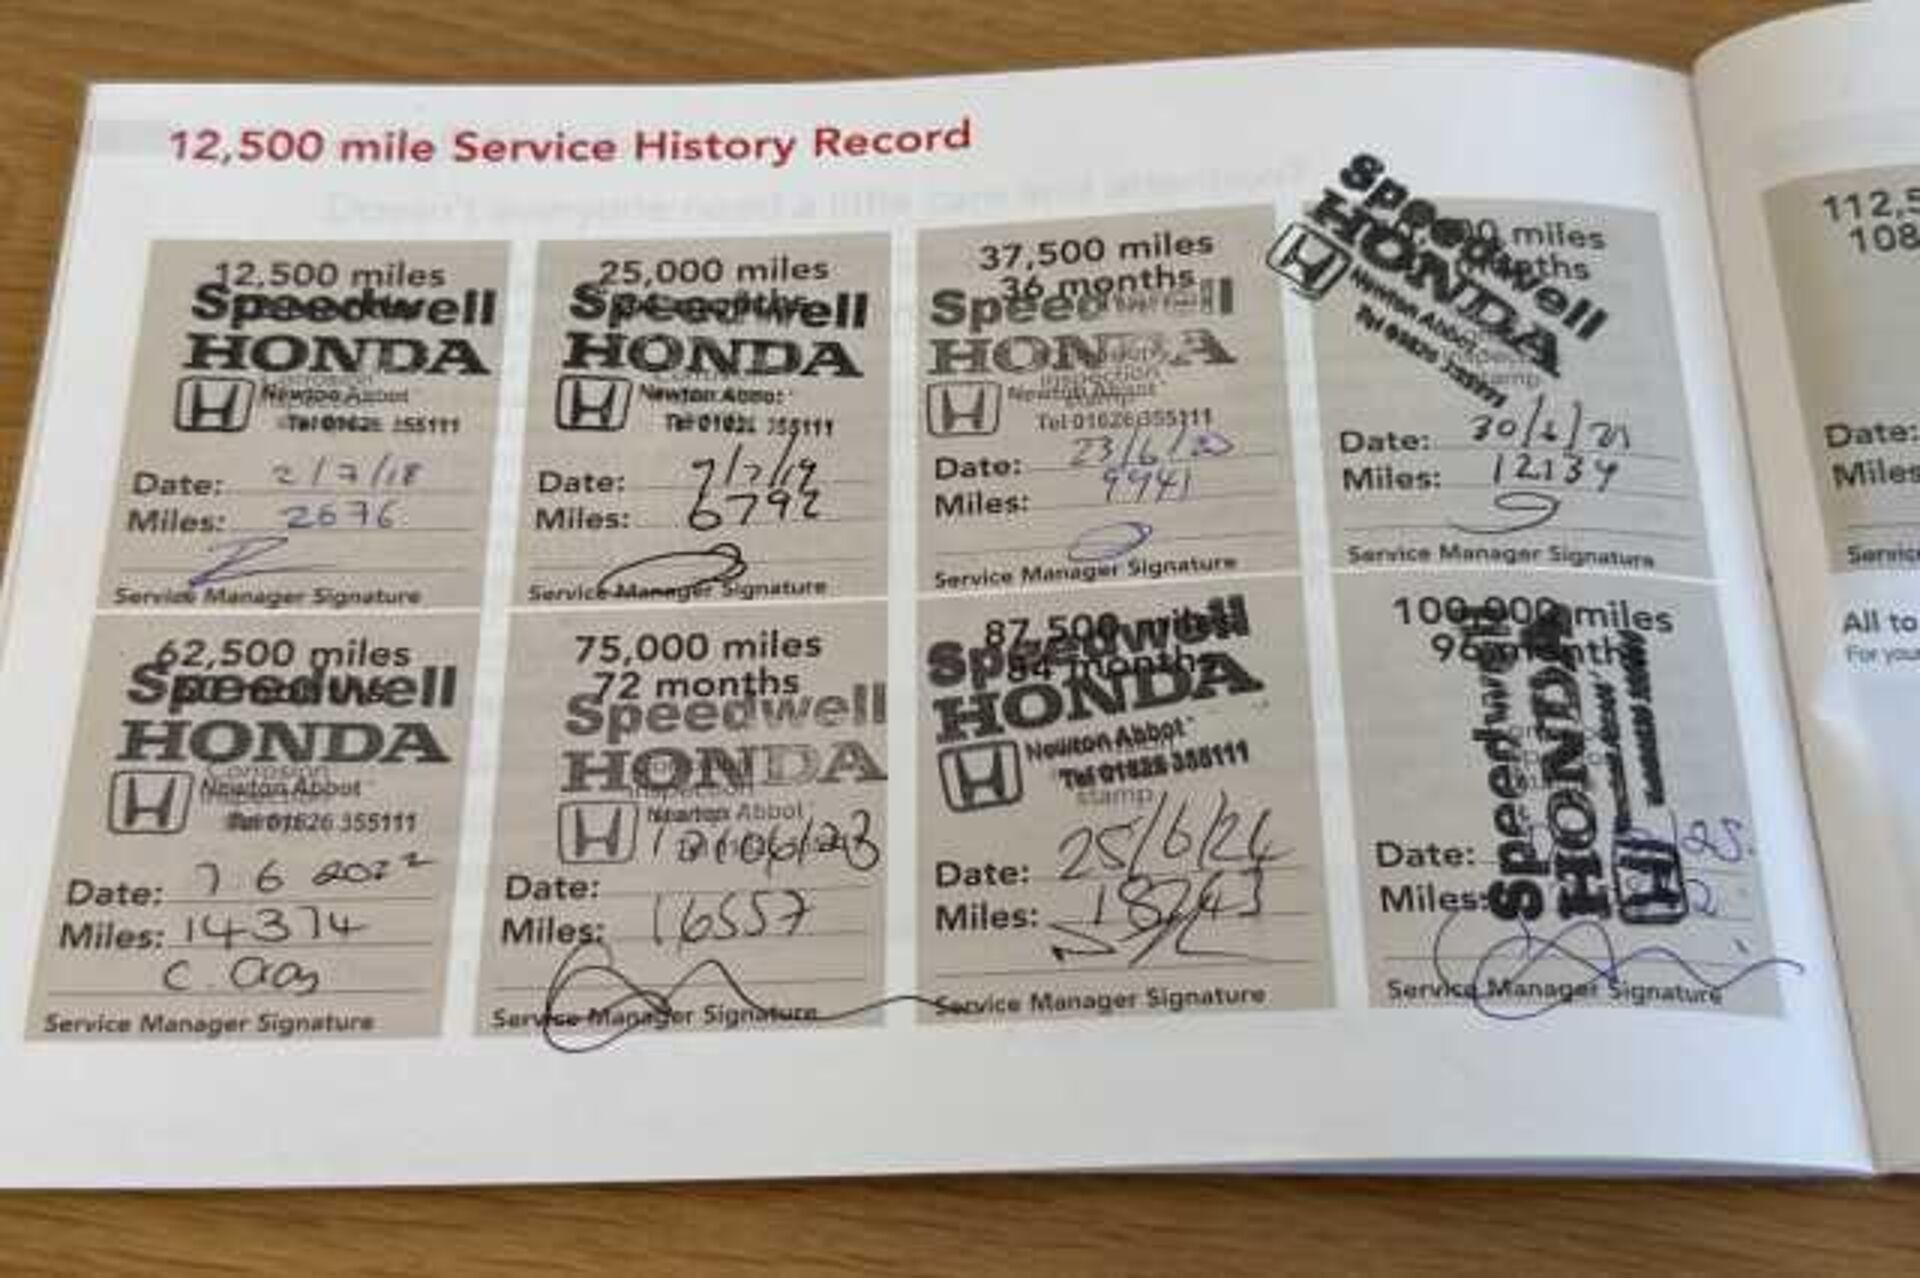 12,500 mile Service History Record
12,500 miles
Speedwell
HONDA
Newton Abbot
Tel 01626 355111
Date: 2/7/18
Miles: 2676
Service Manager Signature
25,000 miles
Speedwell
HONDA
Newton Abbot
Tel 01626 355111
Date: 9/7/19
Miles: 6792
Service Manager Signature
37,500 miles
36 months
Speedwell
HONDA
inspection
Newton Abbot
Tel 01626 355111
Date: 23/6/20
Miles: 9941
Service Manager Signature
miles
Speedwell
HONDA
Newton Abbot
Tel 01626 355111
stamp
Date: 30/6/21
Miles: 12134
Service Manager Signature
62,500 miles
Speedwell
HONDA
Corrosion
Newton Abbot
Tel 01626 355111
Date: 7 6 2022
Miles: 14374
Service Manager Signature
75,000 miles
72 months
Speedwell
HONDA
inspection
Newton Abbot
Date:
Miles: 16557
Service Manager Signature
87,500 miles
84 months
Speedwell
HONDA
Newton Abbot
Tel 01626 355111
stamp
Date: 25/6/24
Miles: 18743
Service Manager Signature
100,000 miles
96 months
Speedwell
HONDA
Date: /25
Miles:
Service Manager Signature
112,5
108
Date:
Miles
Service
All to
For your